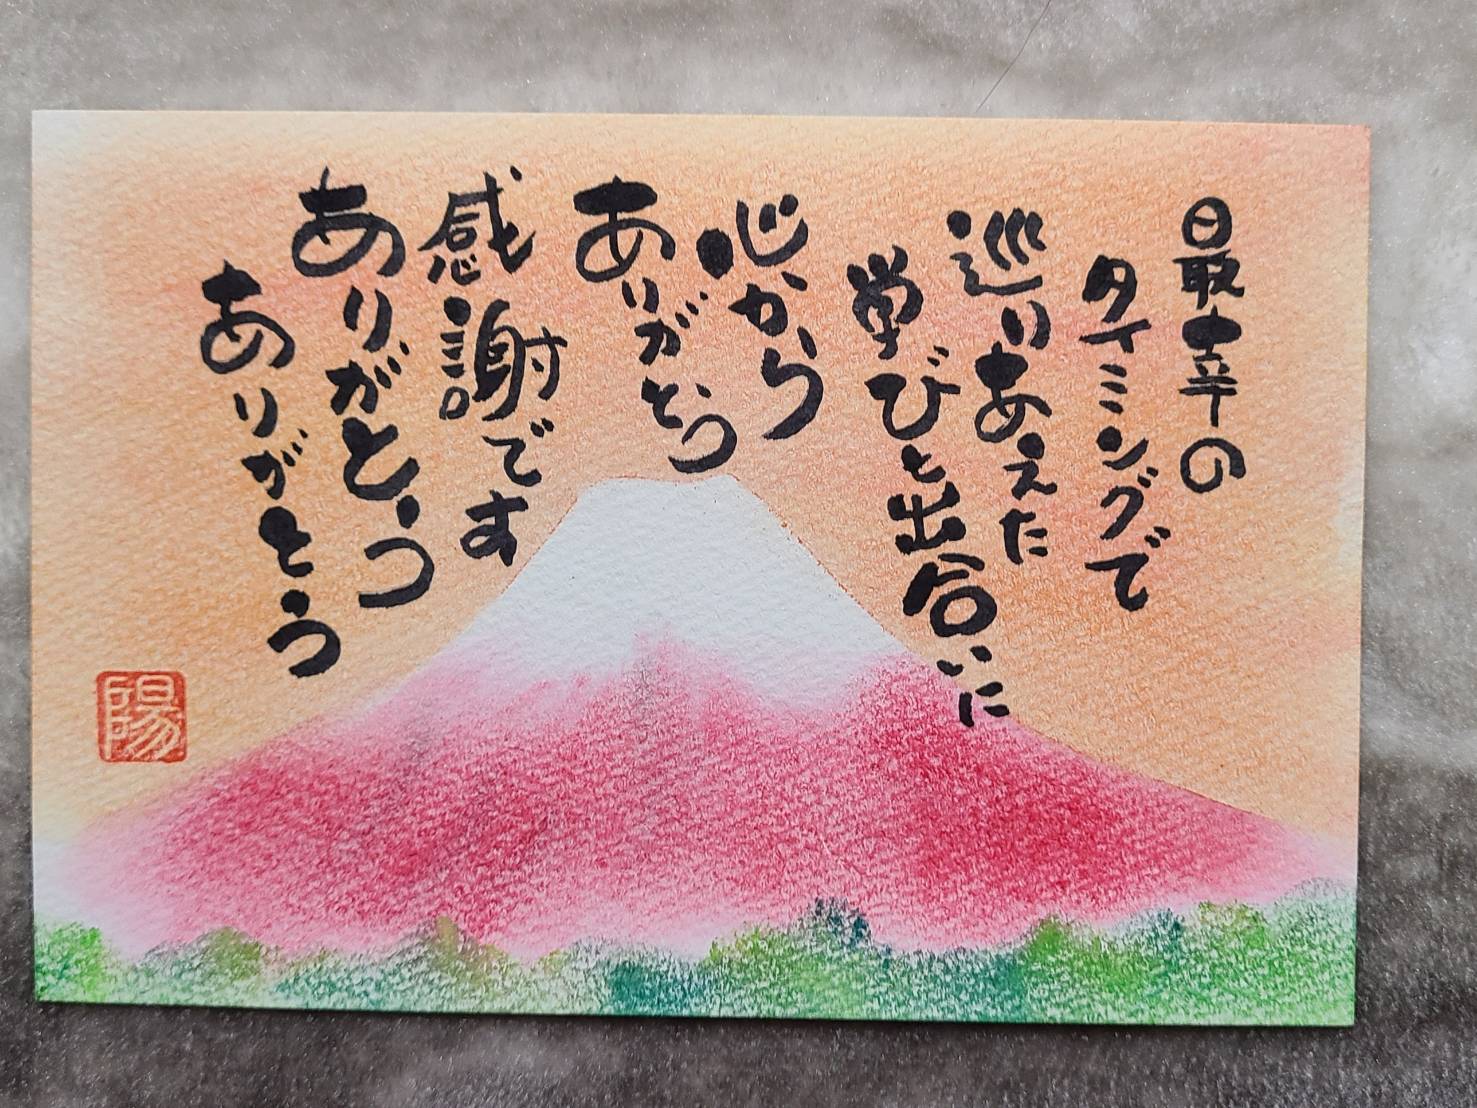 最幸の
タイミングで
巡りあえた
学びと出合いに
心から
ありがとう
感謝です
ありがとう
ありがとう
陽